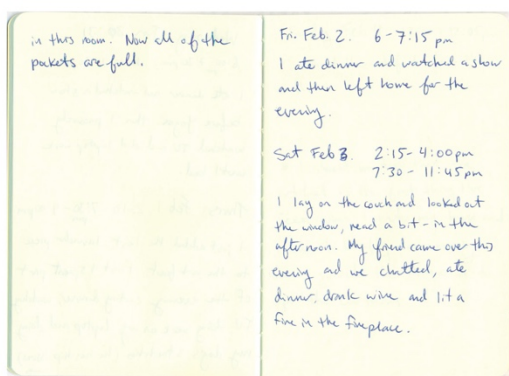 in this room. Now all of the
pockets are full.
Fri. Feb. 2. 6-7:15 pm
I ate dinner and watched a show
and then left home for the
evening.
Sat Feb 3. 2:15-4:00pm
7:30-11:45pm
I lay on the couch and looked out
the window, read a bit - in the
afternoon. My friend came over this
evening and we chatted, ate
dinner, drank wine and lit a
fire in the fireplace.